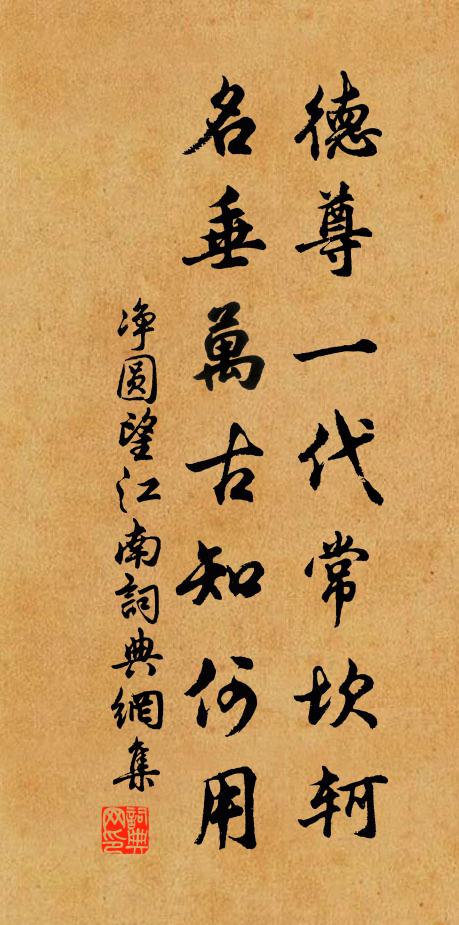 德尊一代常坎軻
名垂萬古知何用
净圆望江南詞典網集
詞典网印